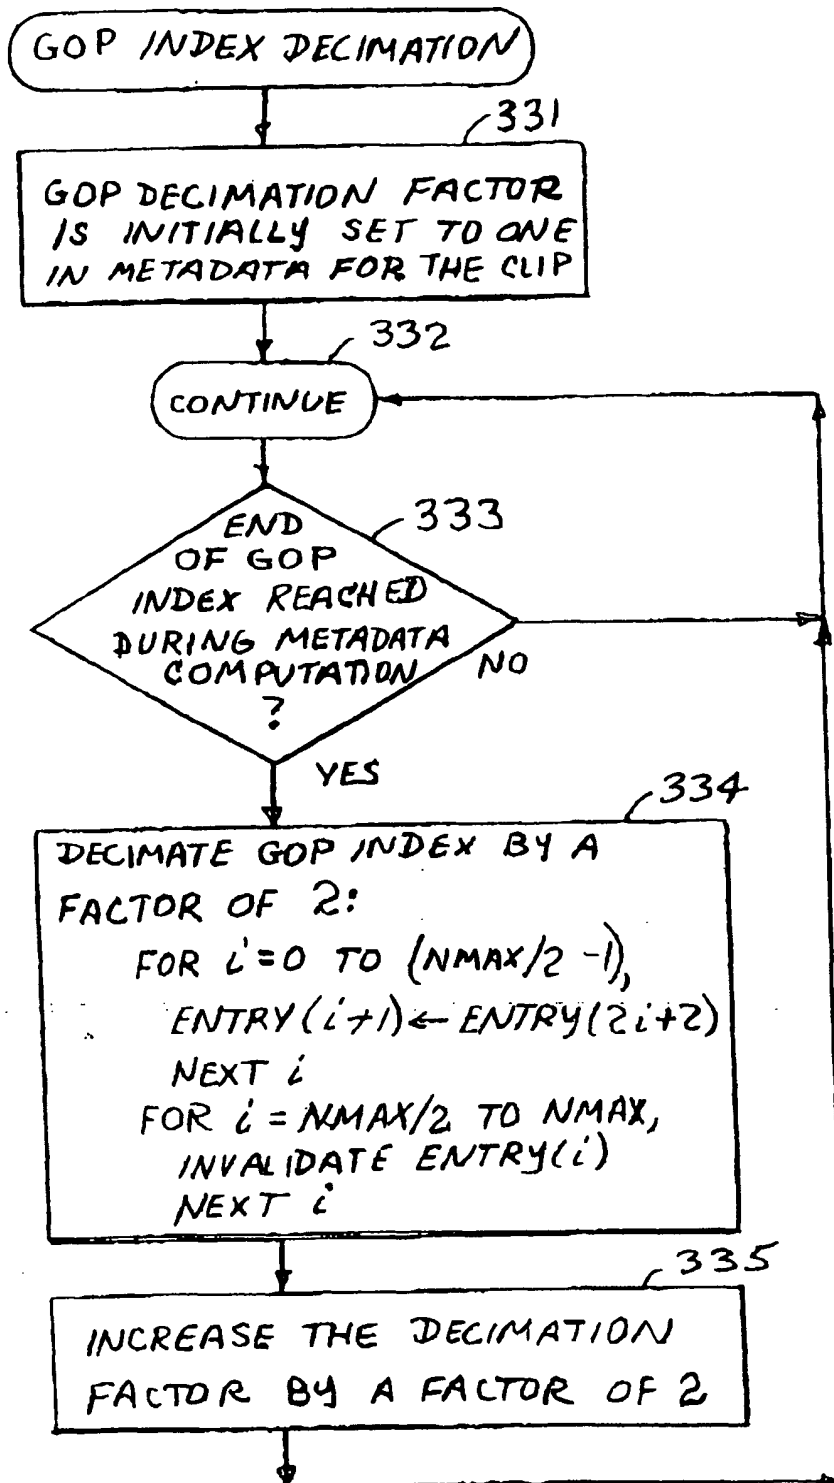 GOP INDEX DECIMATION
331
GOP DECIMATION FACTOR
IS INITIALLY SET TO ONE
IN METADATA FOR THE CLIP
332
CONTINUE
333
END
OF GOP
INDEX REACHED
DURING METADATA
COMPUTATION
?
NO
YES
334
DECIMATE GOP INDEX BY A
FACTOR OF 2:
FOR i=0 TO (NMAX/2 -1),
ENTRY(i+1)←ENTRY(2i+2)
NEXT i
FOR i = NMAX/2 TO NMAX,
INVALIDATE ENTRY(i)
NEXT i
335
INCREASE THE DECIMATION
FACTOR BY A FACTOR OF 2